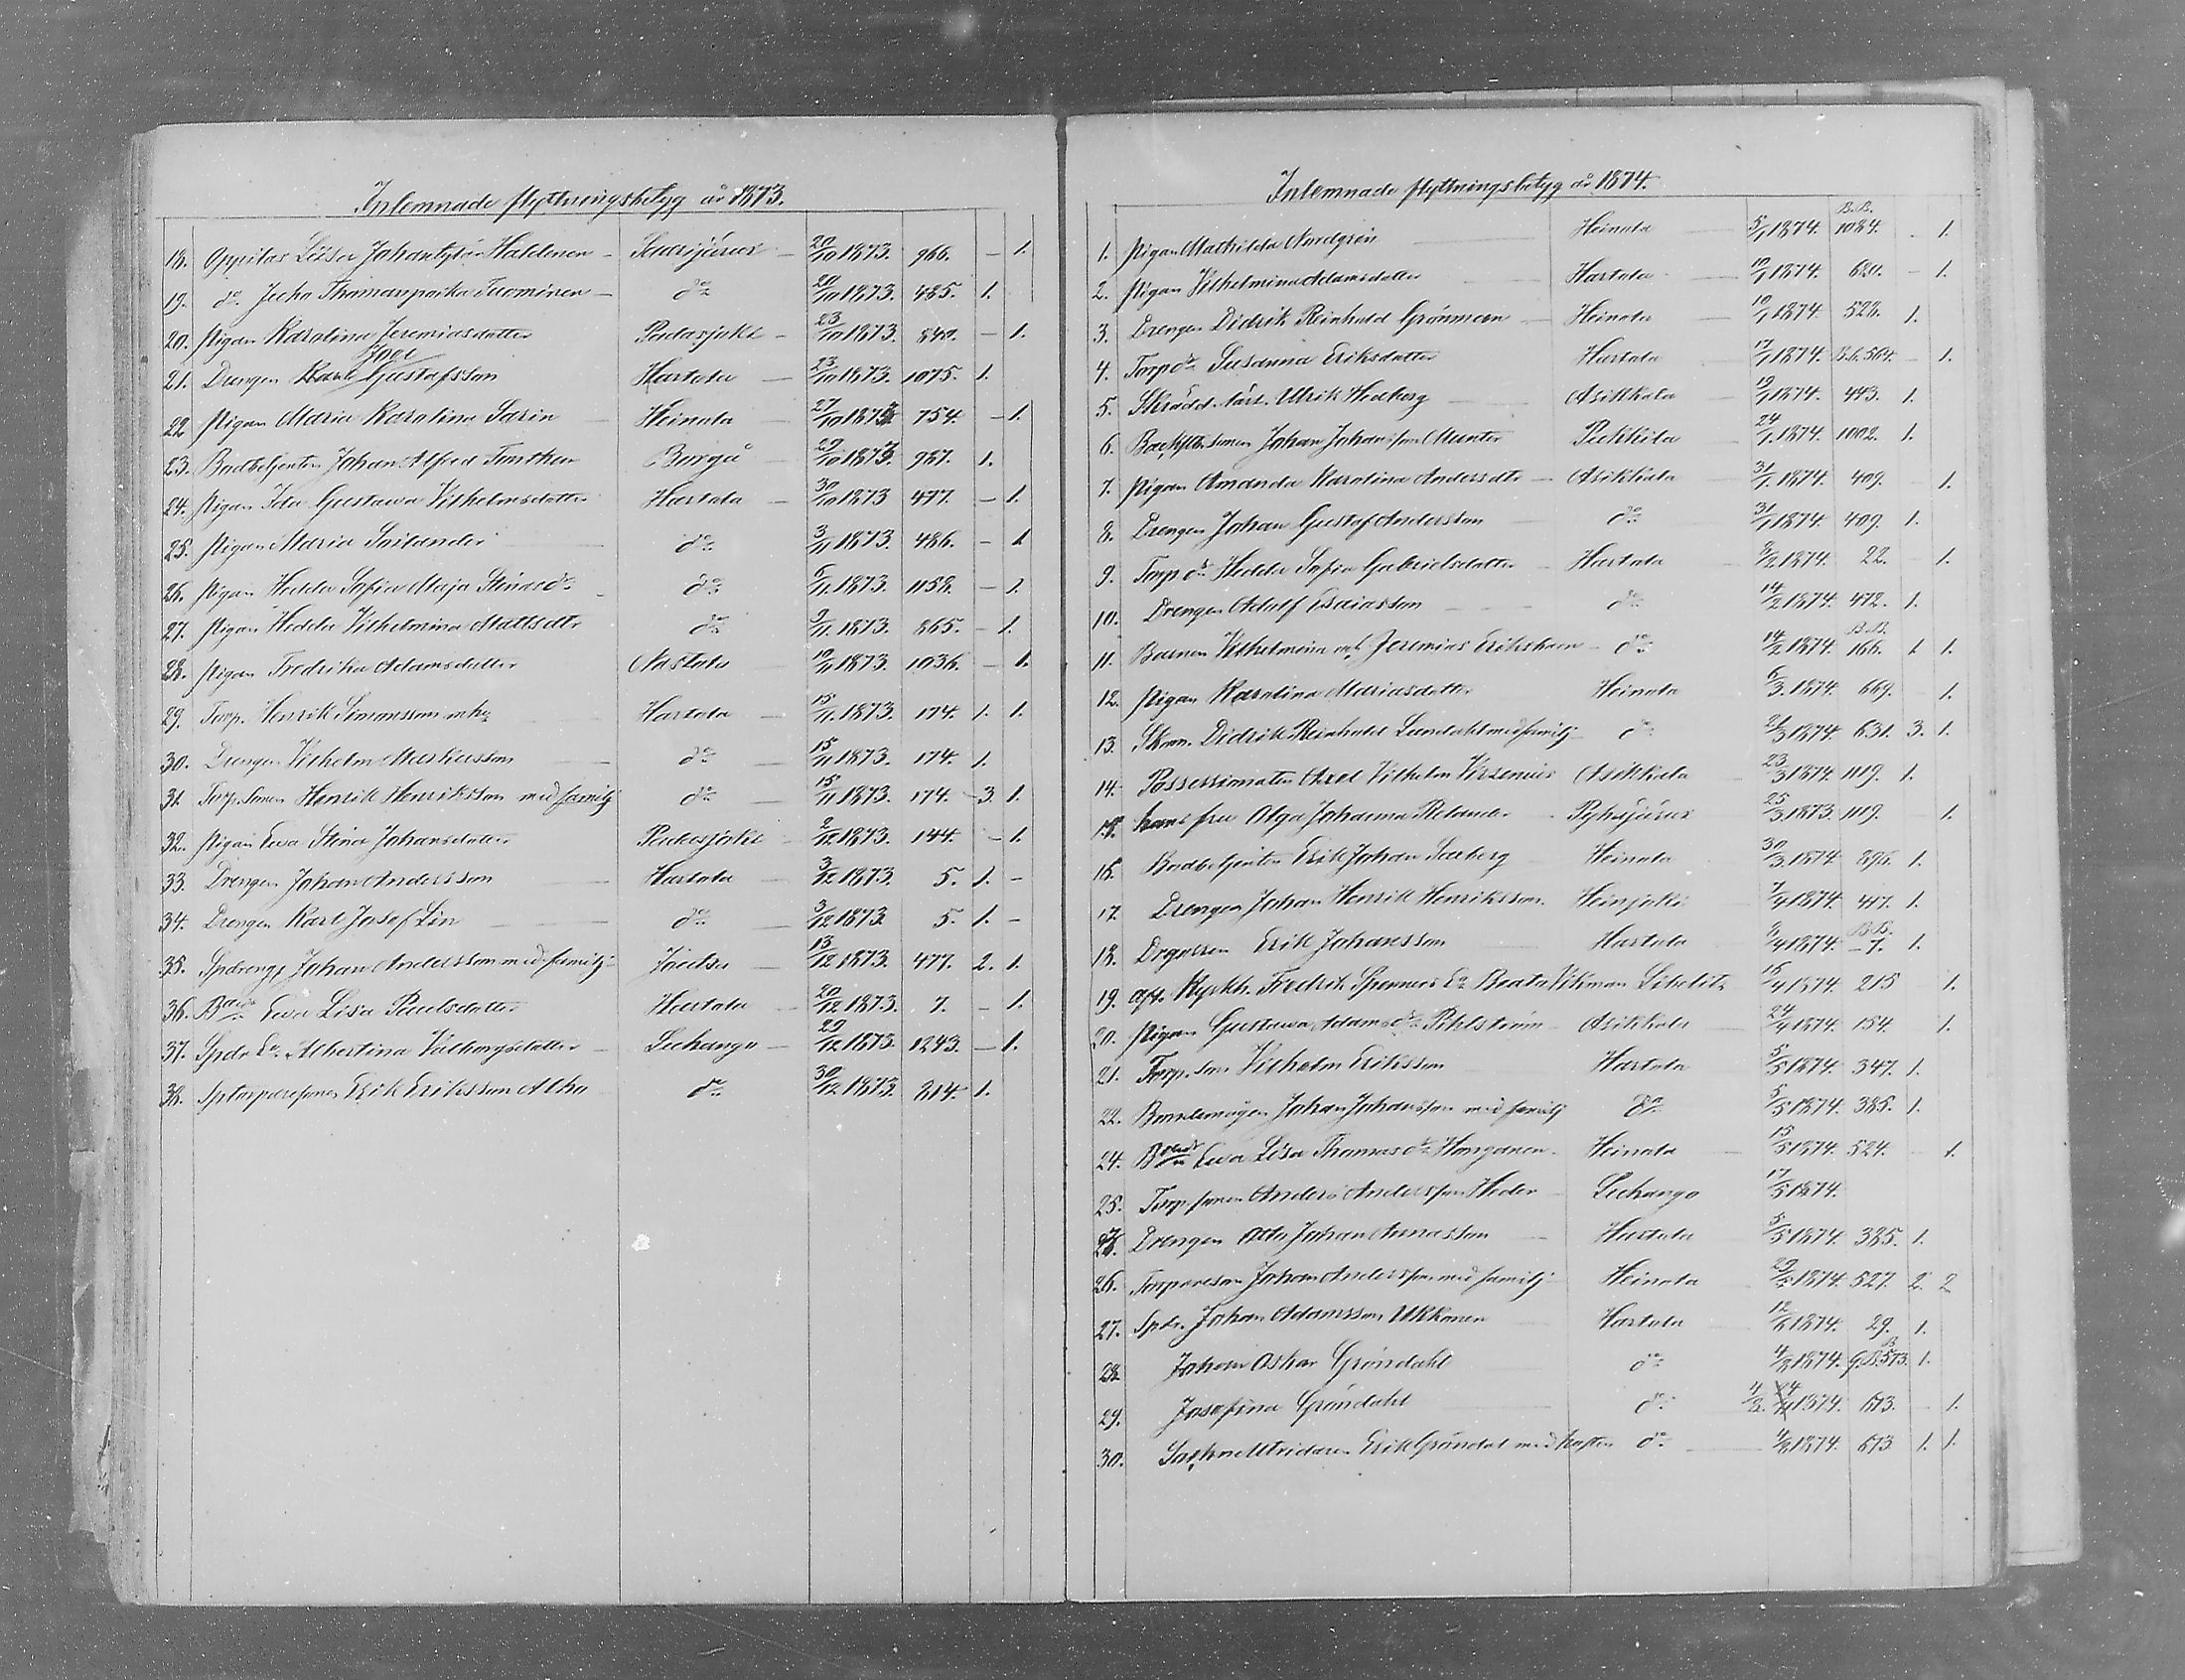 Inlemnade flyttningsbetyg år 1873.
18. Gysitas Liisa Johantytär Haldenen - Saarijärvi - 20/10 1873. 966. - 1.
19. do Juho Thomanpoika Tuominen - do 20/10 1873. 485. 1.
20. Pigan Karolina Jeremiasdotter Padasjoki - 23/10 1873. 840. - 1.
21. Drengen Karl Gustafsson Hartola - 23/10 1873. 1075. 1.
22. Pigan Maria Karolina Sarin Heinola - 27/10 1873. 754. - 1.
23. Badbetjenten Johan Alfred Borgå - 29/10 1873. 987. 1.
24. Pigan Ida Gustava Vilhelmsdotter Hartola - 30/10 1873 477. - 1.
25. Pigan Maria do 3/11 1873. 486. - 1
26. Pigan Hedda Sofia Maja Stinasdr do 6/11. 1873. 1158. - 1.
27. Pigan Hedda Vilhelmina Mattsdtr do 9/11. 1873. 865. - 1.
28. Pigan Fredrika Adamsdotter Nastola 10/11 1873. 1036. - 1.
29. Torp. Henrik Simonsson mhu Hartola - 15/11. 1873. 174. 1. 1.
30. Drengen Vilhelm Markusson do - 15/11 1873. 174. 1.
31. Torp.sonen Henrik Henriksson med familj do - 15/11 1873. 174. - 3. 1.
32. Pigan Eva Stina Johansdotter Padasjoki - 2/12 1873. 144. - 1.
33. Drengen Johan Andersson Hartola - 3/12 1873. 5. 1. -
34. Drengen Karl Josef Lin do - 3/12 1873 5. 1. -
35. Spdrengs Johan Andersson med familj Joutsa - 13/12 1873. 477. 2. 1.
36. Eva Lisa Paulsdotter Hartola - 20/12 1873. 7. - 1.
37. Spdr Ea. Albertina Valborgsdotter - Leehango - 29/12 1873. 1243. - 1.
38. Erik Eriksson do 30/12 1873. 814. 1.
Inlemnade flyttningsbetyg år 1874.
1. Pigan Mathilda Nordgrén Heinola 5/1 1874. B.B. 1084. - 1.
2. Pigan Vilhelmina Adamsdotter Hartola 10/1 1874. 620. - 1.
3. Drengen Didrik Reinhold Grönman Heinola 10/1 1874. 528. 1.
4. Torp dr Susanna Eriksdotter Hartola 17/1 1874. B.b. 564. - 1.
5. Skrädd. lärl. Ulrik Hedberg Asikkala 19/1 1874. 443. 1.
6. Johan Johansson Munter Pukkila 24/1. 1874. 1002. 1.
7. Pigan Amanda Karolina Andersdtr - Asikkala 31/1. 1874. 409. 1.
8. Drengen Johan Gustaf Andersson do 31/1 1874. 409. 1.
9. Torp dr Hedda Sofia Gabrielsdotter - Hartola 8/2 1874. 22. - 1.
10. Drengen Adolf Esaiasson do 14/2 1874. 472. 1.
11. Barnen Vilhelmina och Jeremias Eriksbarn - do 14/2 1874. B.B. 166. 1. 1.
12. Pigan Karolina Mariasdotter Heinola 6/3. 1874. 669. 1.
13. Skom. Didrik Reinhold Lundahl med familj do 21/3 1874. 631. 3. 1.
14. Possessionaten Axel Vilhelm Asikkala 23/3 1874. 1119. 1.
15. hans fru Olga Johanna Relander - Pyhäjärvi 25/3. 1873. 1119. 1.
16. Badbetjenten Erik Johan Seeberg Heinola 30/3. 1874 896. 1.
17. Drengen Johan Henrik Henriksson. Heinjoki 7/4 1874. 447. 1.
18. Erik Johansson Hartola 8/4 1874. B.B. - 7. 1.
19. Aft. Kyrkh. Fredrik Ea Beata Vikman Libelitz 16/4 1874. 215 1.
20. Pigan Gustava Adamsdr Pihlström Asikkala 24/4 1874. 154. 1.
21. Torp.son Vilhelm Eriksson Hartola 5/5 1874. 347. 1.
22. Bondemågen Johan Johansson med familj do 5/5 1874. 385. 1.
24. Eva Lisa Thomasdr Honganen. Heinola 15/5 1874. 524. - 1.
25. Torp.sonen Anders Andersson Heder Leehango 17/5 1874.
Drengen Otto Johan Annasson Hartola 5/5 1874. 385. 1.
26. Torpareson Johan Andersson med familj Heinola 29/5 1874. 527. 2. 2
27. Spdr. Johan Adamsson Ukkonen Hartola 12/6 1874. 29. 1.
28. Johan Oskar Gröndahl do 4/8 1874. 573. 1.
29. Josefina Gröndahl do 4/8. 1874. 673. - 1.
30. Erik Gröndal med hustru do 4/8 1874. 673 1. 1.